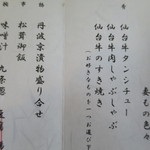 麦もの色々
仙台牛タンシチュー
仙台牛肉しゃぶしゃぶ
仙台牛のすき焼き
(お好きなものを一つお選び下
丹波京漬物盛り合せ
松茸御飯
味噌汁
九条葱